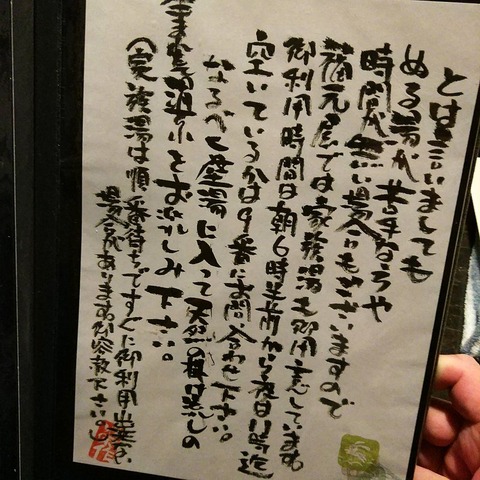 とは言いましても
ぬる湯が苦手な方や
時間が無い場合もございますので
福元屋では家族湯も御用意しています
御利用時間は朝6時半前から夜11時迄
空いているかは9番にお問い合わせ下さい。
なるべく壁湯に入って天然の掛け流しの
をお楽しみ下さい。
(家族湯は順番待ちですぐに御利用出来ない
場合がありますが御容赦下さい。)